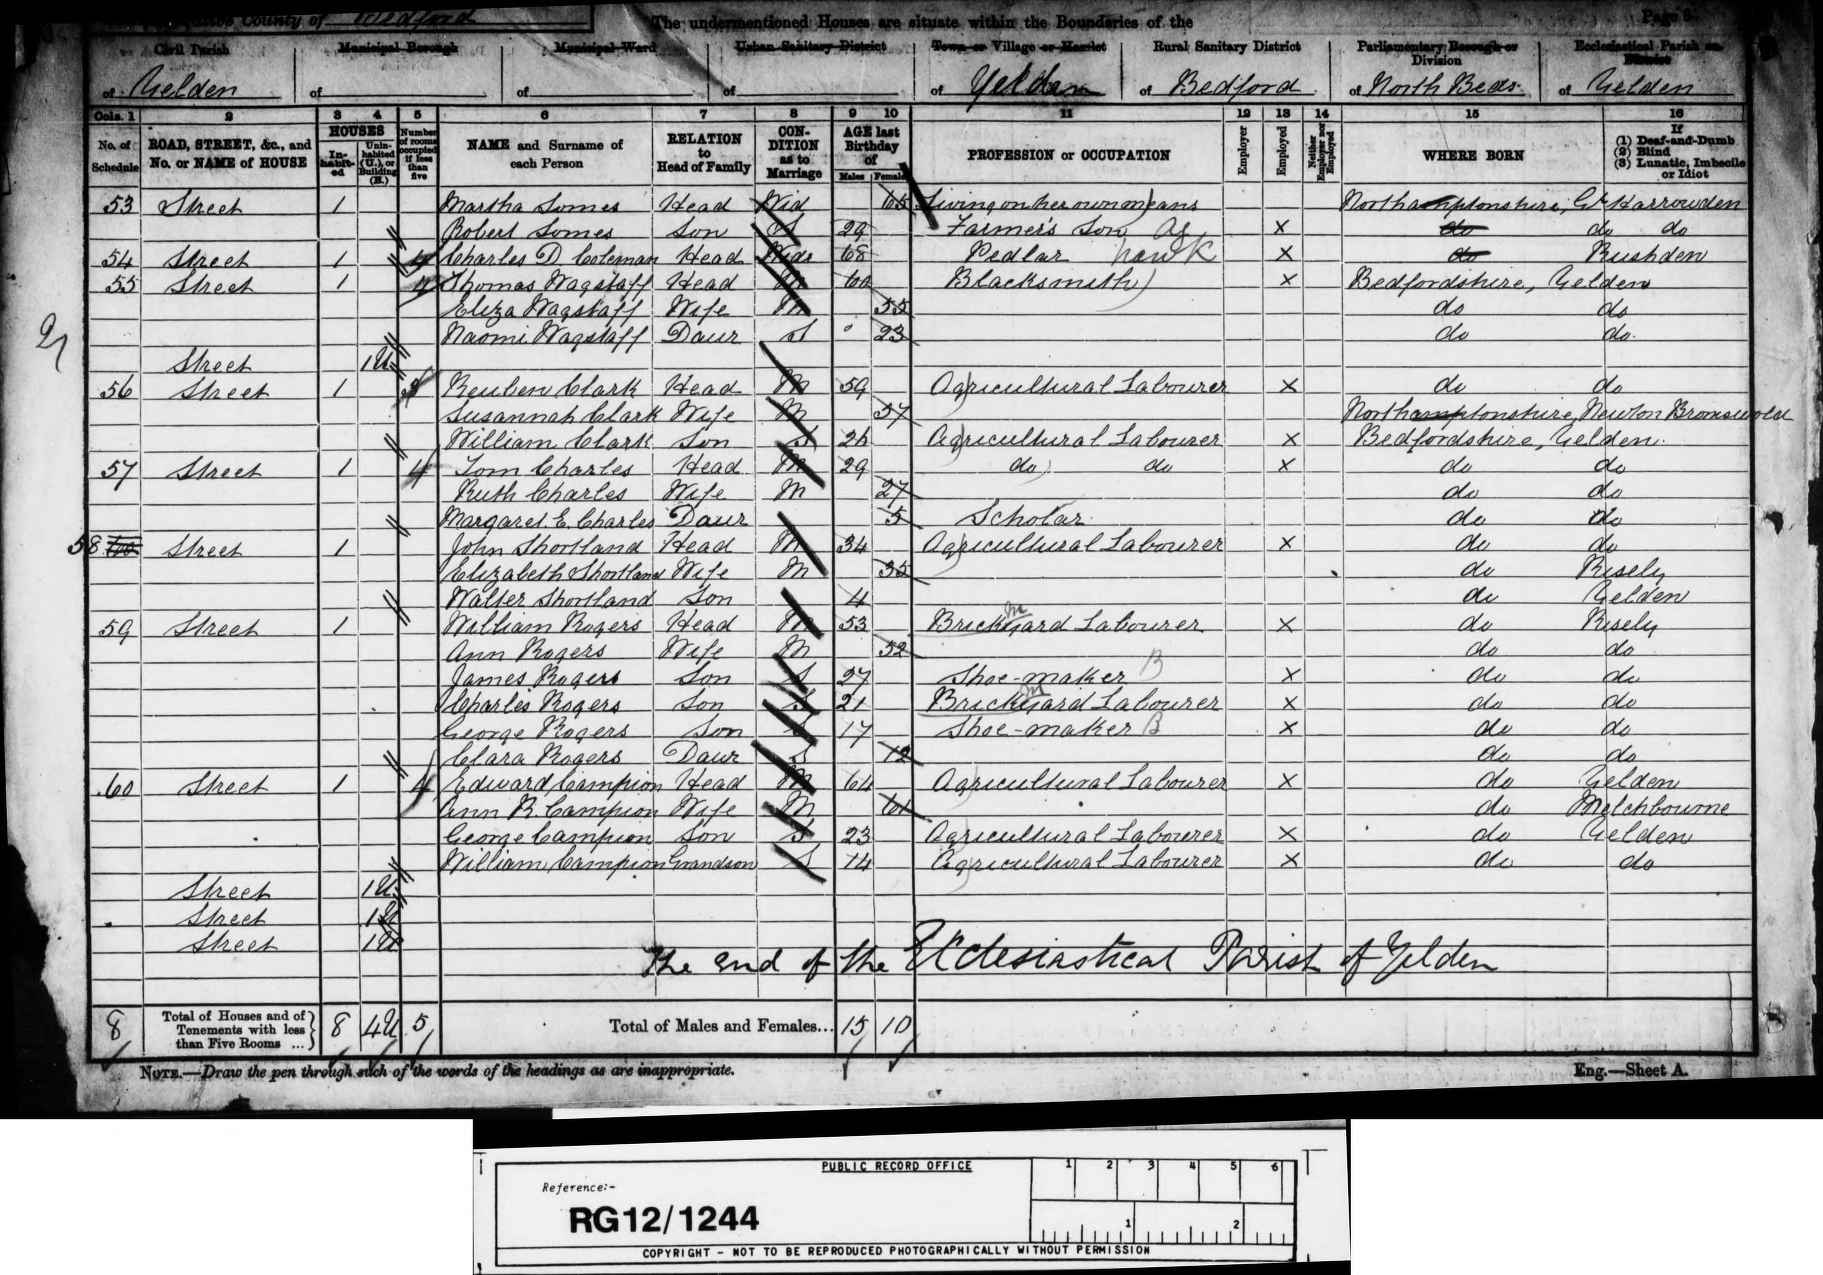 County of Bedford
The undermentioned Houses are situate within the Boundaries of the
Page 8
Civil Parish Municipal Borough Municipal Ward Urban Sanitary District Town or Village or Hamlet Rural Sanitary District Parliamentary Borough or Division Ecclesiastical Parish or District
of Yelden of of of of Yelden of Bedford of North Beds. of Yelden
Cols. 1 2 3 4 5 6 7 8 9 10 11 12 13 14 15 16
No. of Schedule ROAD, STREET, &c., and No. or NAME of HOUSE HOUSES Inhabited Uninhabited (U.), or Building (B.) Number of rooms occupied if less than five NAME and Surname of each Person RELATION to Head of Family CONDITION as to Marriage AGE last Birthday of Males Females PROFESSION or OCCUPATION Employer Employed Neither Employer nor Employed WHERE BORN If (1) Deaf-and-Dumb (2) Blind (3) Lunatic, Imbecile or Idiot
53 Street 1 Martha Somes Head Wid 65 Living on her own means Northamptonshire, Gt Harrowden
Robert Somes Son S 29 Farmer's Son Ag X do do do
54 Street 1 4 Charles D. Coleman Head Widr 68 Pedlar hawk X do Rushden
55 Street 1 4 Thomas Wagstaff Head M 60 Blacksmith X Bedfordshire, Yelden
Eliza Wagstaff Wife M 55 do do
Naomi Wagstaff Daur S 23 do do
Street 1U
56 Street 1 3 Reuben Clark Head M 59 Agricultural Labourer X do do
Susannah Clark Wife M 57 Northamptonshire, Newton Bromswold
William Clark Son S 26 Agricultural Labourer X Bedfordshire, Yelden
57 Street 1 4 Tom Charles Head M 29 do do X do do
Ruth Charles Wife M 27 do do
Margaret E. Charles Daur 5 Scholar do do
58 Street 1 John Shortland Head M 34 Agricultural Labourer X do do
Elizabeth Shortland Wife M 35 do Risely
Walter Shortland Son 4 do Yelden
59 Street 1 William Rogers Head M 53 Brickyard Labourer m X do Risely
Ann Rogers Wife M 52 do do
James Rogers Son S 27 Shoe-maker B X do do
Charles Rogers Son S 21 Brickyard Labourer m X do do
George Rogers Son S 17 Shoe-maker B X do do
Clara Rogers Daur S 12 do do
60 Street 1 4 Edward Campion Head M 64 Agricultural Labourer X do Yelden
Ann R. Campion Wife M 61 do Melchbourne
George Campion Son S 23 Agricultural Labourer X do Yelden
William Campion Grandson S 14 Agricultural Labourer X do do
Street 1U
Street 1U
Street 1U
The end of the Ecclesiastical Parish of Yelden
8 Total of Houses and of Tenements with less than Five Rooms ... 8 4U 5 Total of Males and Females... 15 10
NOTE.—Draw the pen through such of the words of the headings as are inappropriate.
Eng.—Sheet A.
PUBLIC RECORD OFFICE
1 2 3 4 5 6
Reference:-
RG12/1244
1 2
COPYRIGHT - NOT TO BE REPRODUCED PHOTOGRAPHICALLY WITHOUT PERMISSION